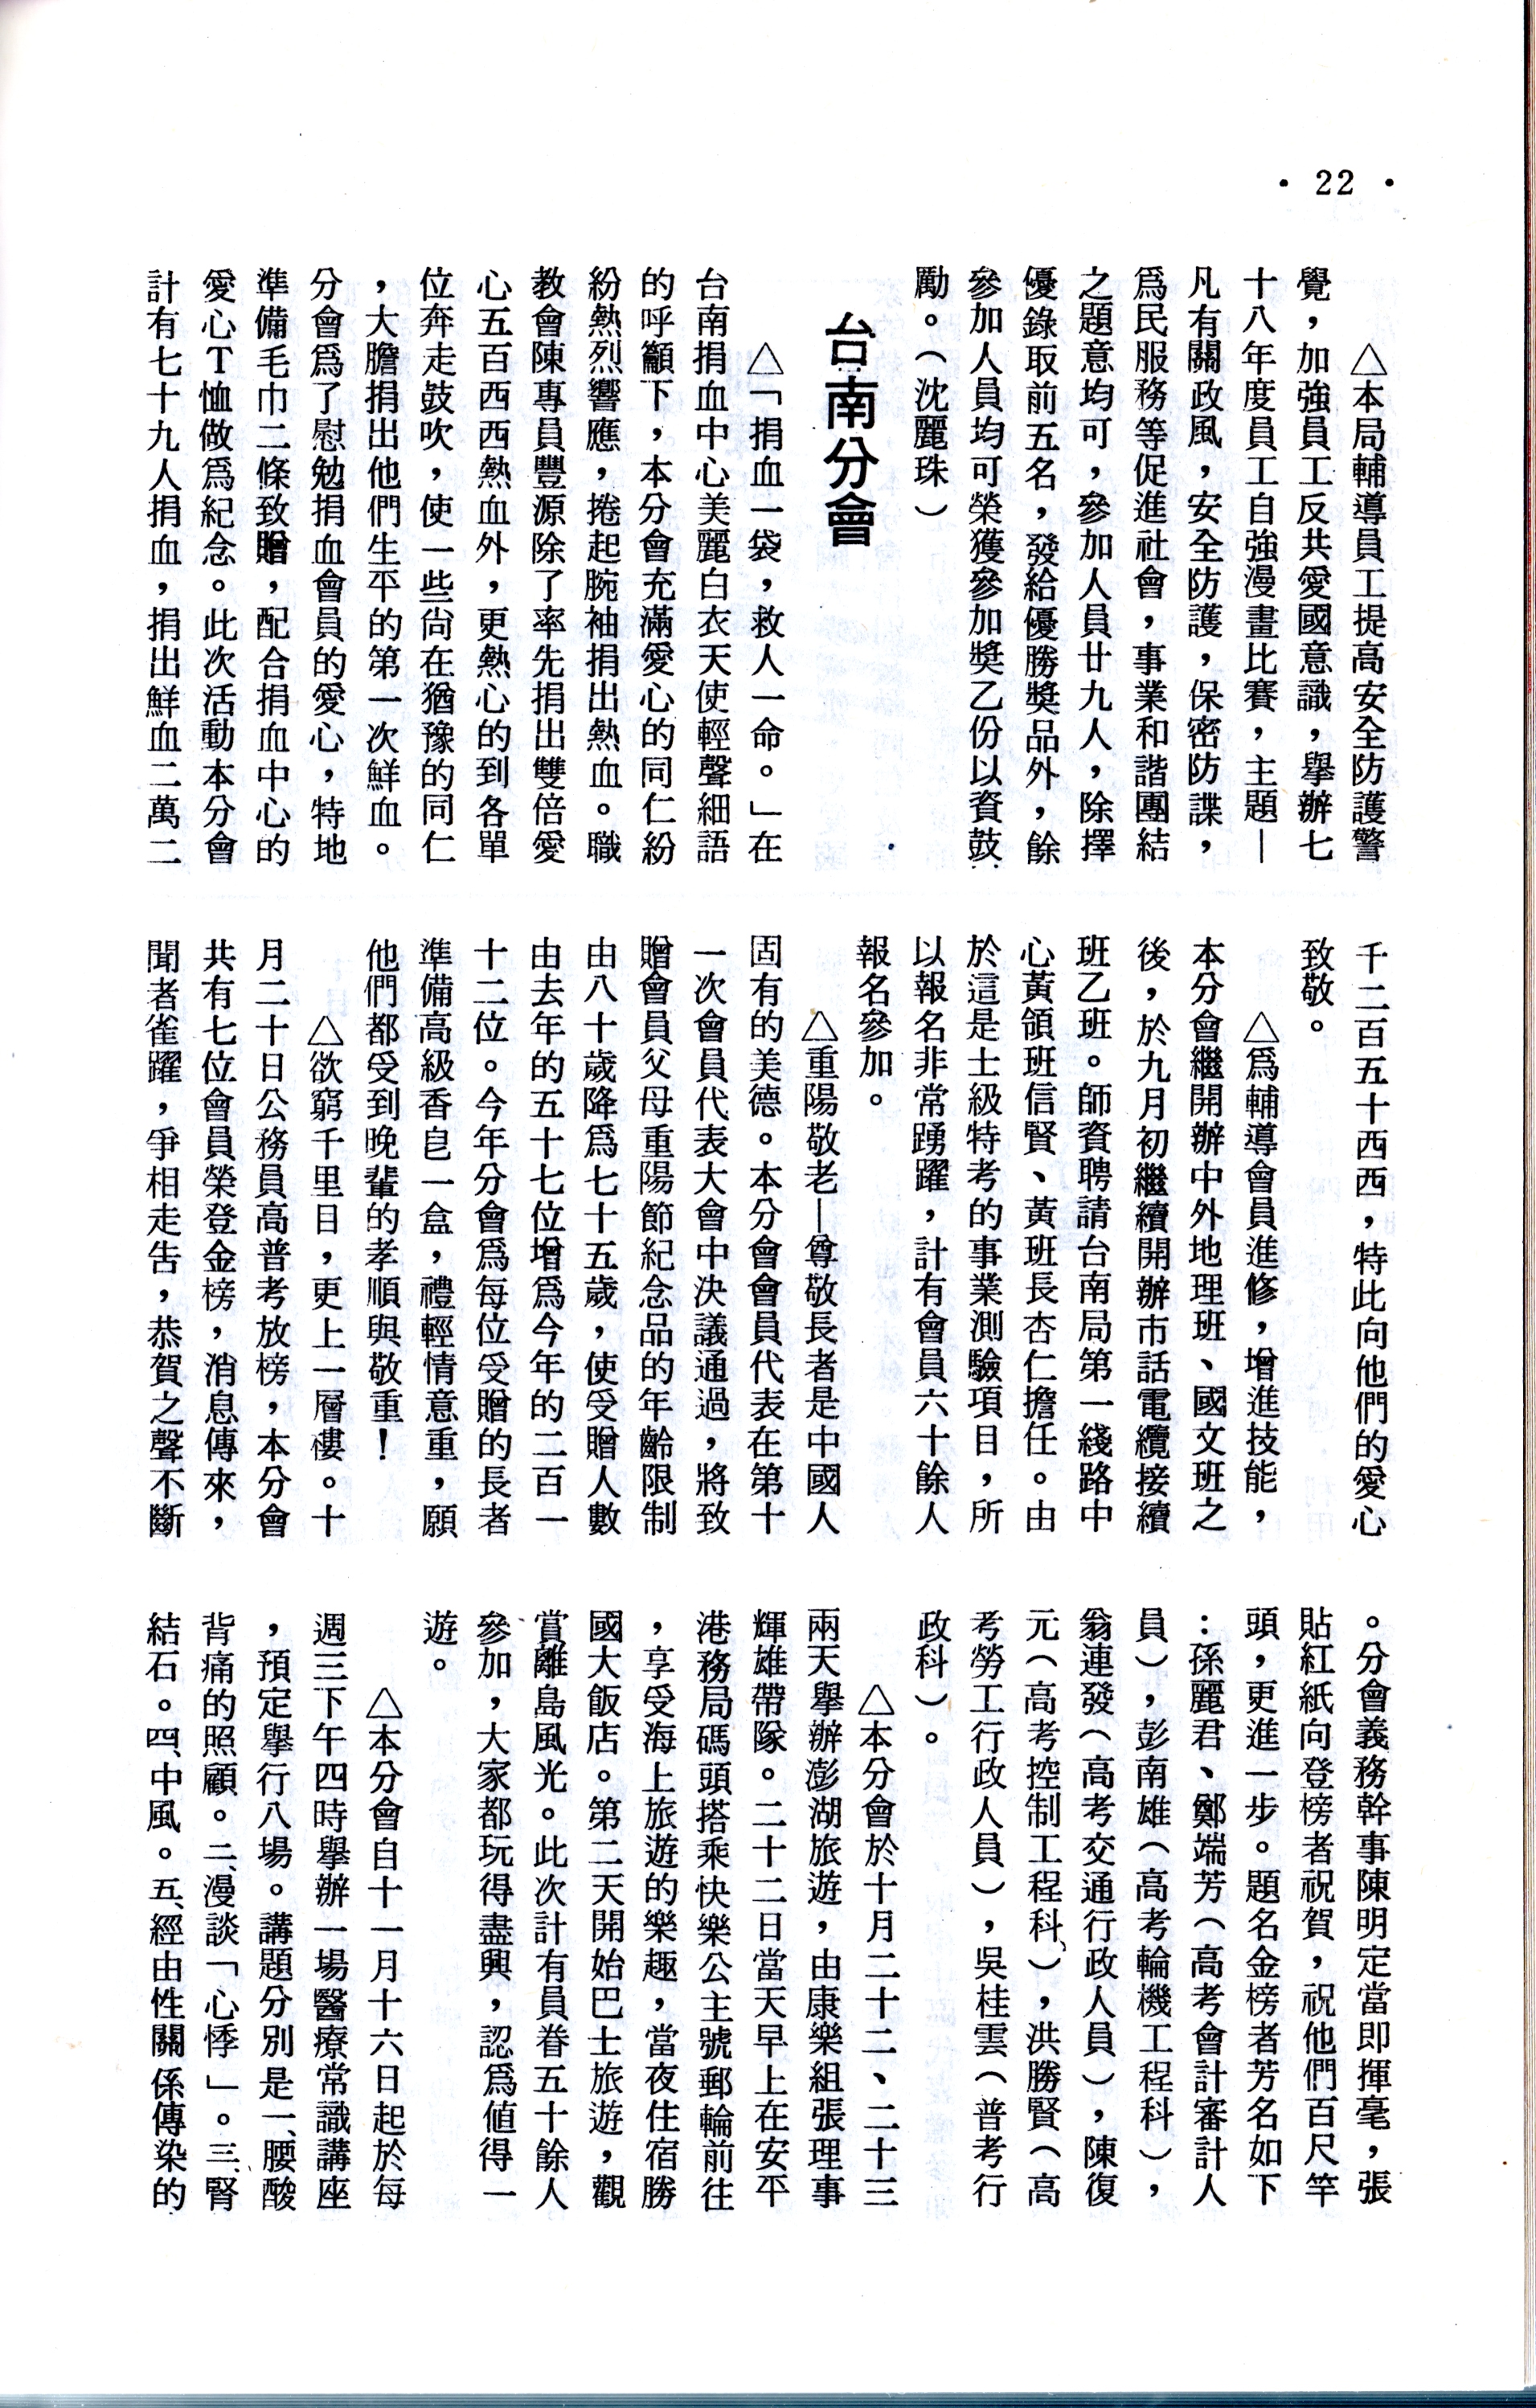 • 22 •
△本局輔導員工提高安全防護警
覺，加強員工反共愛國意識，舉辦七
十八年度員工自強漫畫比賽，主題—
凡有關政風，安全防護，保密防諜，
爲民服務等促進社會，事業和諧團結
之題意均可，參加人員廿九人，除擇
優錄取前五名，發給優勝獎品外，餘
參加人員均可榮獲參加獎乙份以資鼓
勵。（沈麗珠）
台南分會
△「捐血一袋，救人一命。」在
台南捐血中心美麗白衣天使輕聲細語
的呼籲下，本分會充滿愛心的同仁紛
紛熱烈響應，捲起腕袖捐出熱血。職
教會陳專員豐源除了率先捐出雙倍愛
心五百西西熱血外，更熱心的到各單
位奔走鼓吹，使一些尙在猶豫的同仁
，大膽捐出他們生平的第一次鮮血。
分會爲了慰勉捐血會員的愛心，特地
準備毛巾二條致贈，配合捐血中心的
愛心T恤做爲紀念。此次活動本分會
計有七十九人捐血，捐出鮮血二萬二
千二百五十西西，特此向他們的愛心
致敬。
△爲輔導會員進修，增進技能，
本分會繼開辦中外地理班、國文班之
後，於九月初繼續開辦市話電纜接續
班乙班。師資聘請台南局第一綫路中
心黃領班信賢、黃班長杏仁擔任。由
於這是士級特考的事業測驗項目，所
以報名非常踴躍，計有會員六十餘人
報名參加。
△重陽敬老—尊敬長者是中國人
固有的美德。本分會會員代表在第十
一次會員代表大會中決議通過，將致
贈會員父母重陽節紀念品的年齡限制
由八十歲降爲七十五歲，使受贈人數
由去年的五十七位增爲今年的二百一
十二位。今年分會爲每位受贈的長者
準備高級香皀一盒，禮輕情意重，願
他們都受到晚輩的孝順與敬重！
△欲窮千里目，更上一層樓。十
月二十日公務員高普考放榜，本分會
共有七位會員榮登金榜，消息傳來，
聞者雀躍，爭相走吿，恭賀之聲不斷
。分會義務幹事陳明定當即揮毫，張
貼紅紙向登榜者祝賀，祝他們百尺竿
頭，更進一步。題名金榜者芳名如下
：孫麗君、鄭端芳（高考會計審計人
員），彭南雄（高考輪機工程科），
翁連發（高考交通行政人員），陳復
元（高考控制工程科），洪勝賢（高
考勞工行政人員），吳桂雲（普考行
政科）。
△本分會於十月二十二、二十三
兩天舉辦澎湖旅遊，由康樂組張理事
輝雄帶隊。二十二日當天早上在安平
港務局碼頭搭乘快樂公主號郵輪前往
，享受海上旅遊的樂趣，當夜住宿勝
國大飯店。第二天開始巴士旅遊，觀
賞離島風光。此次計有員眷五十餘人
參加，大家都玩得盡興，認爲値得一
遊。
△本分會自十一月十六日起於每
週三下午四時舉辦一場醫療常識講座
，預定舉行八場。講題分別是一、腰酸
背痛的照顧。二、漫談「心悸」。三、腎
結石。四、中風。五、經由性關係傳染的